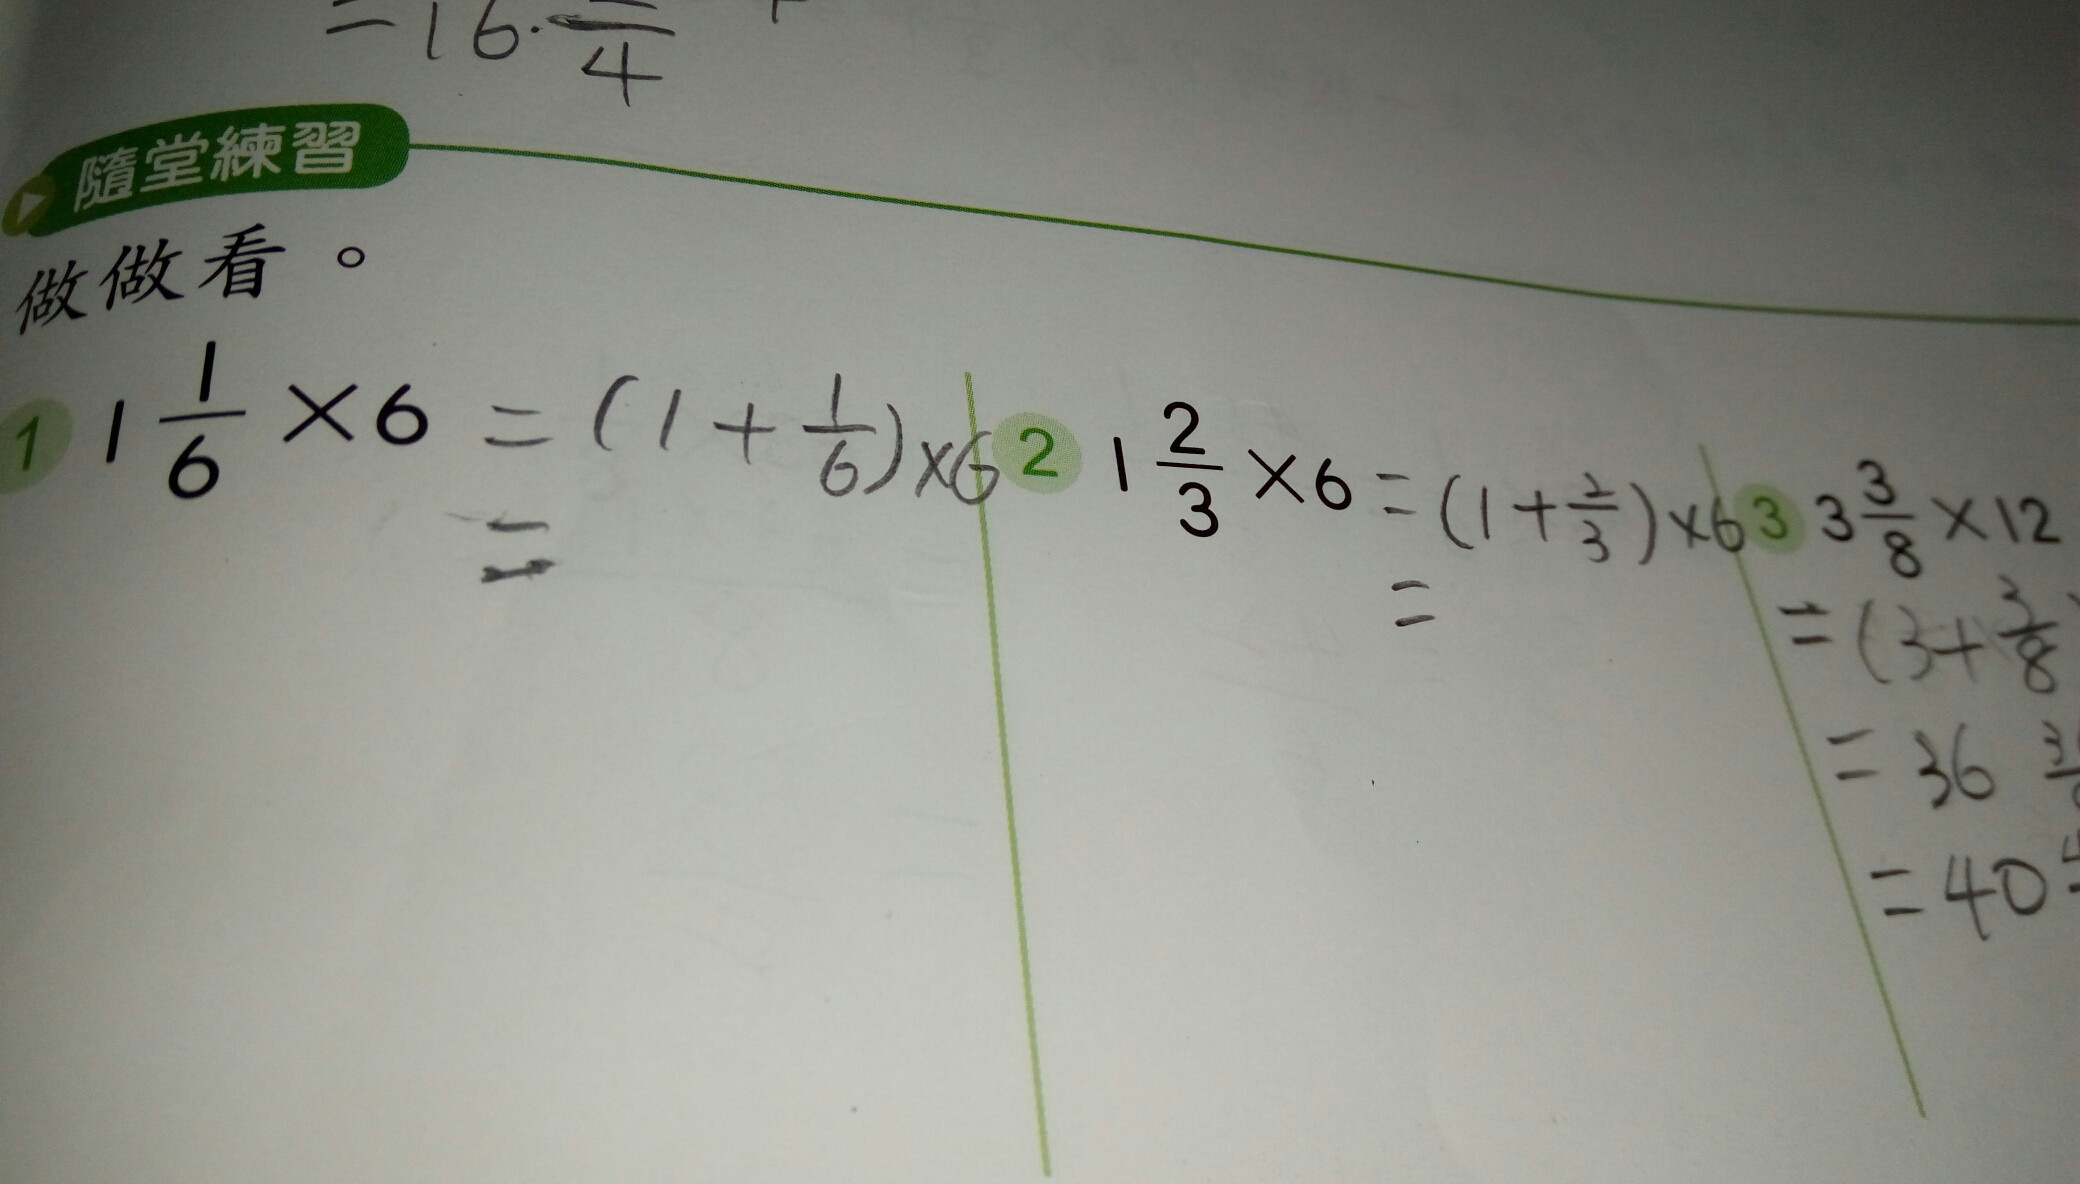 =16.
4
隨堂練習
做做看。
1 1 1/6 ×6 = (1+1/6)×6
=
2 1 2/3 ×6 = (1+2/3)×6
=
3 3 3/8 ×12
= (3+3/8
= 36 3
= 40 4